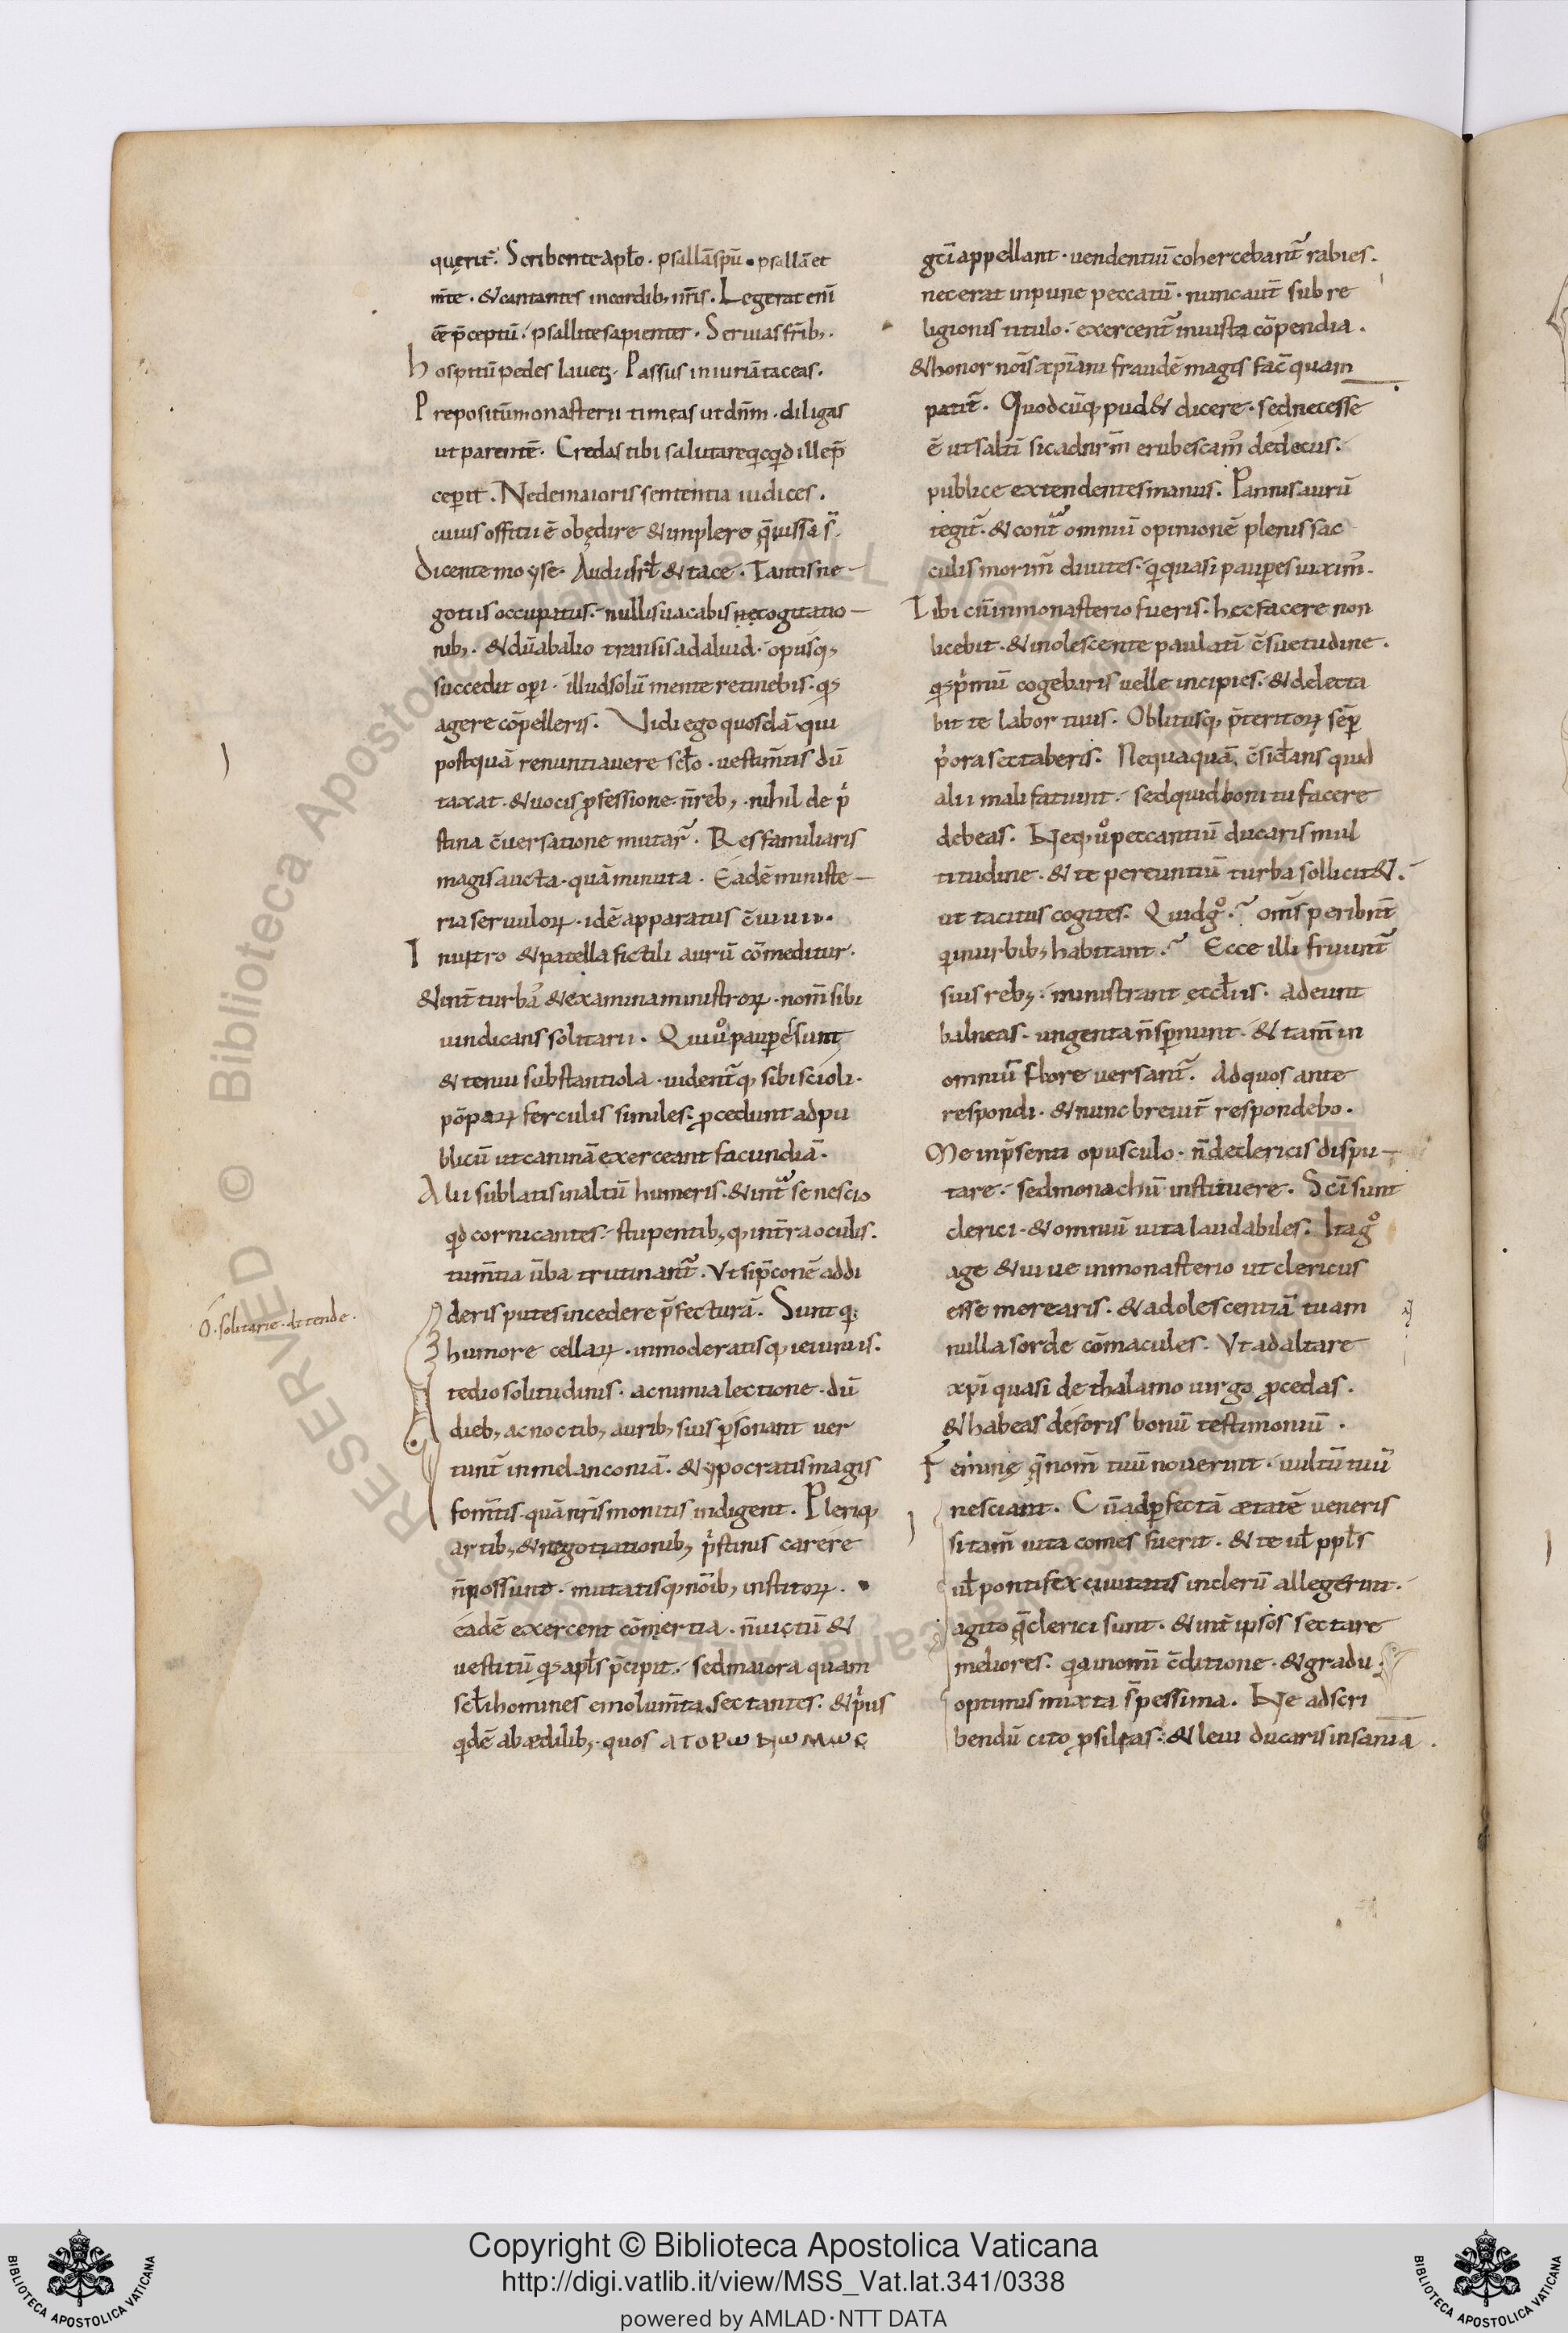 quęrit̃. Scribente apl̃o. psallã spũ. psallã et
m̃te. & cantantes in cordib; nr̃is. Legerat eni᷃
eẽ p̃ceptũ. psallite sapienter. Seruias fr̃ib;.
hospitũ pedes laues. Passus iniuriã taceas.
Prepositũ monasterii timeas ut dñm. diligas
ut parentẽ. Credas tibi salutare qicqid ille p̃
ceperit. Ne de maioris sententia iudices.
cuius offitii ẽ obędire & implere q̃ iussa s̃.
Dicente moyse. Audi isrl̃ & tace. Tantis ne-
gotiis occupatus. nullis uacabis cogitatio-
nib;. & dũ ab alio transis ad aliud. opusq;
succedit op̱i. illud solũ mente retinebis. qɔ
agere cõpelleris. Vidi ego quosdã qui
postquã renuntiauere scl̃o. uestim̃tis dũ
taxat. & uocis p̱fessione. ñ reb;. nihil de p̾
stina c̃uersatione mutar̃. Res familiaris
magis aucta. quã minuta. Eadẽ ministe-
ria seruuloꝝ. idẽ apparatus c̃uiuii.
In uitro & patella fictili aurũ cõmeditur.
& int̃ turbas & examina ministroꝝ. nom̃ sibi
uindicans solitarii. Qui uº paup̱es sunt
& tenui substantiola. uident̃q; sibi scioli.
põpaꝝ ferculis similes. p̱cedunt ad pu
blicũ ut caninã exerceant facundiã.
Alii sublatis in altũ humeris. & int̃ se nescio
qd cornicantes. stupentib; q; in t̃ra oculis.
tum̃tia ũba trutinant̃. Vt si p̃conẽ addi
deris putes incedere p̃fecturã. Sunt qi
humore cellaꝝ. inmoderatisq; ieiuniis.
tedio solitudinis. ac nimia lectione. dũ
dieb; ac noctib; aurib; suis p̱sonant uer
tunt̃ in melanconiã. & ypocratis magis
fom̃tis. quã nr̃is monitis indigent. Pleriq;
artib; & negotiationib; p̾stinis carere
ñ possunt. mutatisq; nõib; institoꝝ.
eadẽ exercent cõmertia. ñ uictũ &
uestitũ qɔ apl̃s p̃cipit. sed maiora quam
scl̃i homines emolum̃ta sectantes. & p̾us
qidẽ ab ædilib;. quos ΑΓΟΡω ΝωΜωC
O. solitarie. attende.
gr̃ci appellant. uendentiũ cohercebant̃ rabies.
nec erat inpune peccatũ. nunc aut̃ sub re
ligionis titulo. exercent̃ iniusta cõpendia.
& honor nõis xp̃iani fraudẽ magis fac̃ quam
patit̃. Quodcũq; pud& dicere. sed necesse
ẽ ut salti᷃ sic ad nr̃m erubescam᾽ dedecus.
publice extendentes manus. Pannis aurũ
tegit̃. & cont̃ omniũ opinionẽ plenis sac
culis morim̃ diuites. qi quasi paup̱es uixim᾽.
Tibi cũ in monasterio fueris. hęc facere non
licebit. & inolescente paulati᷃ c̃suetudine.
qɔ p̾mũ cogebaris uelle incipies. & delecta
bit te labor tuus. Oblitusq; p̃teritoꝝ sẽp̱
p̾ora sectaberis. Nequaquã c̃sid̃ans quid
alii mali fatiunt. sed quid boni tu facere
debeas. Neq; uº peccantiũ ducaris mul
titudine. & te pereuntiũ turba sollicit&.
ut tacitus cogites. Quid gº. om̃s peribnt̃
qi in urbib; habitant. Ecce illi fruunt̃
suis reb;. ministrant eccl̃iis. adeunt
balneas. ungenta ñ sp̱nunt. & tam̃ in
omniũ flore versant̃. Ad quos ante
respondi. & nunc breuit̃ respondebo.
Me in p̃senti opusculo. ñ de clericis dispu-
tare. sed monachũ instituere. Sc̃i sunt
clerici. & omniũ uita laudabiles. Ita gº
age & uiue in monasterio ut clericus
esse merearis. & adolescentiã tuam
nulla sorde cõmacules. Vt ad altare
xp̃i quasi de thalamo uirgo p̱cedas.
& habeas deforis bonũ testimoniũ.
Feminę q̃ nom̃ tuũ nouerint. uultũ tuũ
nesciant. Cũ ad p̱fectã ætatẽ veneris
si tam̃ uita comes fuerit. & te ul̃ ppl̃s
ul̃ pontifex ciuitatis in clerũ allegerint.
agito q̃ clerici sunt. & int̃ ipsos sectare
meliores. qia in omi᷃ c̃ditione. & gradu.
optimis mixta s̃ pessima. Ne ad scri
bendũ cito p̱silias. & leui ducaris insania.
RESERVED © Biblioteca Apostolica Vaticana. ALL RIGHTS
Copyright © Biblioteca Apostolica Vaticana
http://digi.vatlib.it/view/MSS_Vat.lat.341/0338
powered by AMLAD·NTT DATA
BIBLIOTECA APOSTOLICA VATICANA
BIBLIOTECA APOSTOLICA VATICANA